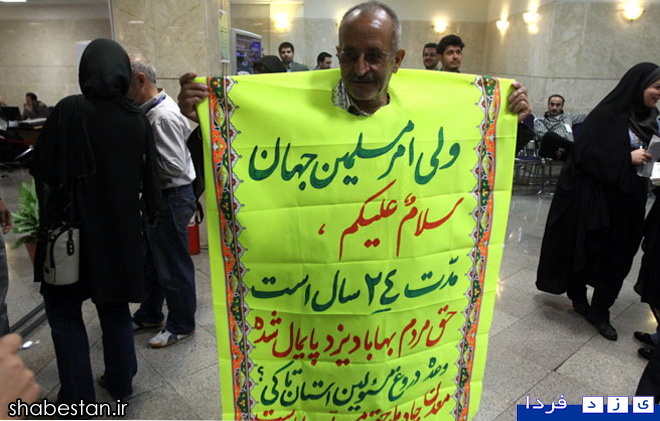 ولی امر مسلمین جهان
سلامٌ علیکم ،
مدّت ٢٤ سال است
حق مردم بهاباد یزد پایمال شده
وعده دروغ مسئولین استان تا کی؟
معدن چادرملو حق
است
shabestan.ir
یزد فردا